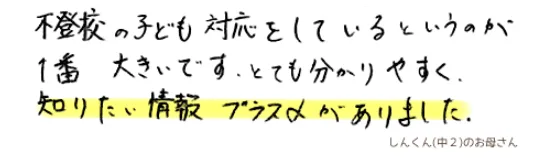 不登校の子ども対応をしているというのが
1番 大きいです。とても分かりやすく、
知りたい情報 プラスαがありました。
しんくん(中2)のお母さん